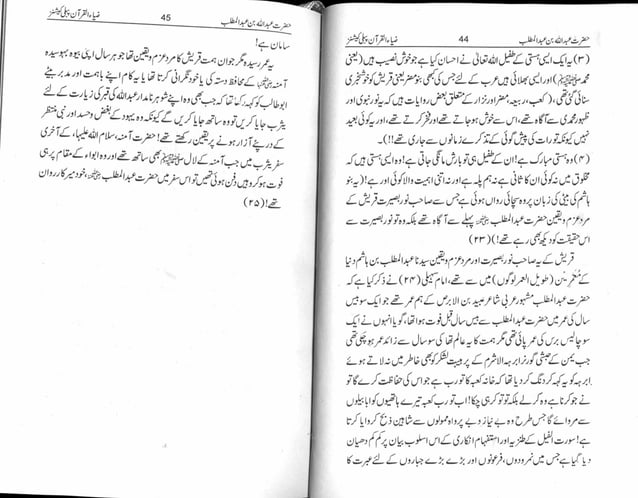 حضرت عبداللہ بن عبدالمطلب 44 ضیاء القرآن پبلی کیشنز
(۳) یہ ایک ایسی ہستی ہے جس کے طفیل اللہ تعالیٰ نے احسان کیا ہے جو خوش نصیب ہیں (یعنی
محمد ﷺ) اور ایسی بھلائی ہیں عرب کے لئے جس کی کبھی بنو مضر یعنی قریش کو خوشخبری
سنائی گئی تھی، (کعب، ربیعہ، مضر اور نزار کے متعلق بعض روایات ہیں کہ یہ نور نبوی اور
ظہور محمدی سے آگاہ تھے، اس سے خوش ہو جاتے تھے اور فخر کرتے تھے، اور یہ کوئی بعید
نہیں کیونکہ تورات کی پیش گوئی کے تذکرے زمانوں سے جاری تھے!!)۔
(۴) وہ ہستی مبارک ہے! ان کے طفیل ہی تو بارش مانگی جاتی ہے! وہ ایسی ہستی ہیں کہ
مخلوق میں نہ کوئی ان کا ثانی ہے نہ ہم پلہ ہے اور نہ اتنی اہمیت والا کوئی اور ہے! (یہ بنو
ہاشم کی بیٹی کی زبان پر وہ سچائی رواں ہوئی ہے جس سے صاحب نور بصیرت قریش کے
مرد عزم و یقین حضرت عبدالمطلب پہلے سے آگاہ تھے بلکہ وہ تو نور بصیرت سے
اس حقیقت کو دیکھ بھی رہے تھے!) (۲۳)
قریش کے یہ صاحب نور بصیرت اور مرد عزم و یقین سیدنا عبدالمطلب بن ہاشم دنیا
کے معمرین (طویل العمر لوگوں) میں سے تھے، امام سہیلی (۲۴) نے ذکر کیا ہے کہ
حضرت عبدالمطلب مشہور عربی شاعر عبید بن الابرص کے ہم عمر تھے جو ایک سو بیس
سال کی عمر میں حضرت عبدالمطلب سے بیس سال قبل فوت ہوا تھا، گویا انہوں نے ایک
سو چالیس برس کی عمر پائی تھی مگر ہمت کا یہ عالم تھا کہ سو سال سے زائد عمر ہو چکی تھی
جب یمن کے حبشی گورنر ابرہہ الاشرم کے پر ہیبت لشکر کو بھی خاطر میں نہ لاتے ہوئے
ابرہہ کو یہ کہہ کر دنگ کر دیا تھا کہ خانہ کعبہ کا تو رب ہے جو اس کی حفاظت کرے گا تو
نے جو کرنا ہے وہ کر لے بلکہ تو تو کر ہی چکا! اب تو رب کعبہ تیرے ہاتھیوں کو ابابیلوں
سے مروائے گا جس طرح وہ بے نیاز و بے پرواہ ممولوں سے شاہین ذبح کروایا کرتا
ہے! سورت الفیل کے طنزیہ اور استفہام انکاری کے اس اسلوب بیان پر کم کم دھیان
دیا گیا ہے جس میں نمرودوں، فرعونوں اور بڑے بڑے جباروں کے لئے عبرت کا
حضرت عبداللہ بن عبدالمطلب 45 ضیاء القرآن پبلی کیشنز
سامان ہے!
یہ عمر رسیدہ مگر جوان ہمت قریش کا مرد عزم و یقین تھا جو ہر سال اپنی بیوہ بہو سیدہ
آمنہ کے محافظ دستہ کی یا خود نگرانی کرتا تھا یا یہ کام اپنے باہمت اور مدبر بیٹے
ابوطالب کو کہہ رکھا تھا کہ جب بھی وہ اپنے شوہر نامدار عبداللہ کی قبر کی زیارت کے لئے
یثرب جایا کریں تو وہ ساتھ جایا کریں گے کیونکہ وہ یہود کے بغض و حسد اور نبی منتظر
کے درپئے آزار ہونے پر یقین رکھتے تھے! حضرت آمنہ، سلام اللہ علیہا، کے آخری
سفر یثرب میں جب آمنہ کے لال ﷺ بھی ساتھ تھے اور وہ ابواء کے مقام پر ہی
فوت ہو کر وہیں دفن ہوئی تھیں تو اس سفر میں حضرت عبدالمطلب، خود میر کارواں
تھے! (۲۵)